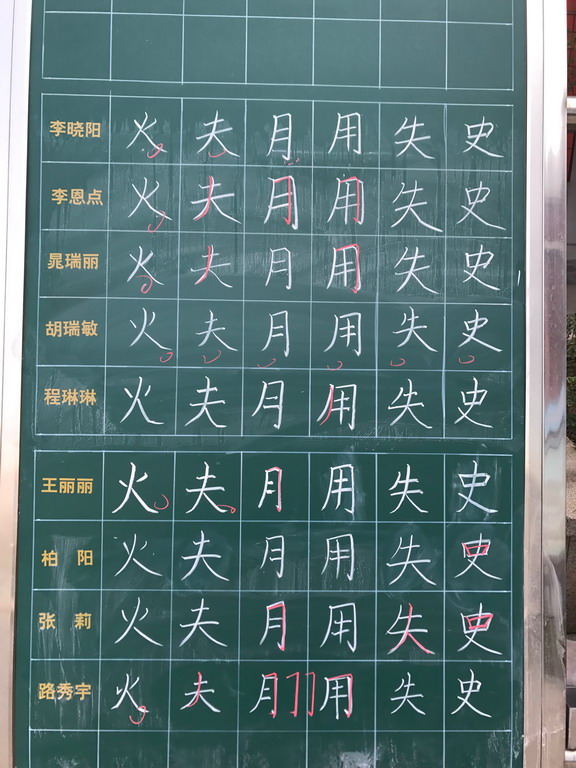 李晓阳 火 夫 月 用 失 史
李恩点 火 夫 月 用 失 史
晁瑞丽 火 夫 月 用 失 史
胡瑞敏 火 夫 月 用 失 史
程琳琳 火 夫 月 用 失 史
王丽丽 火 夫 月 用 失 史
柏 阳 火 夫 月 用 失 史
张 莉 火 夫 月 用 失 史
路秀宇 火 夫 月 用 失 史